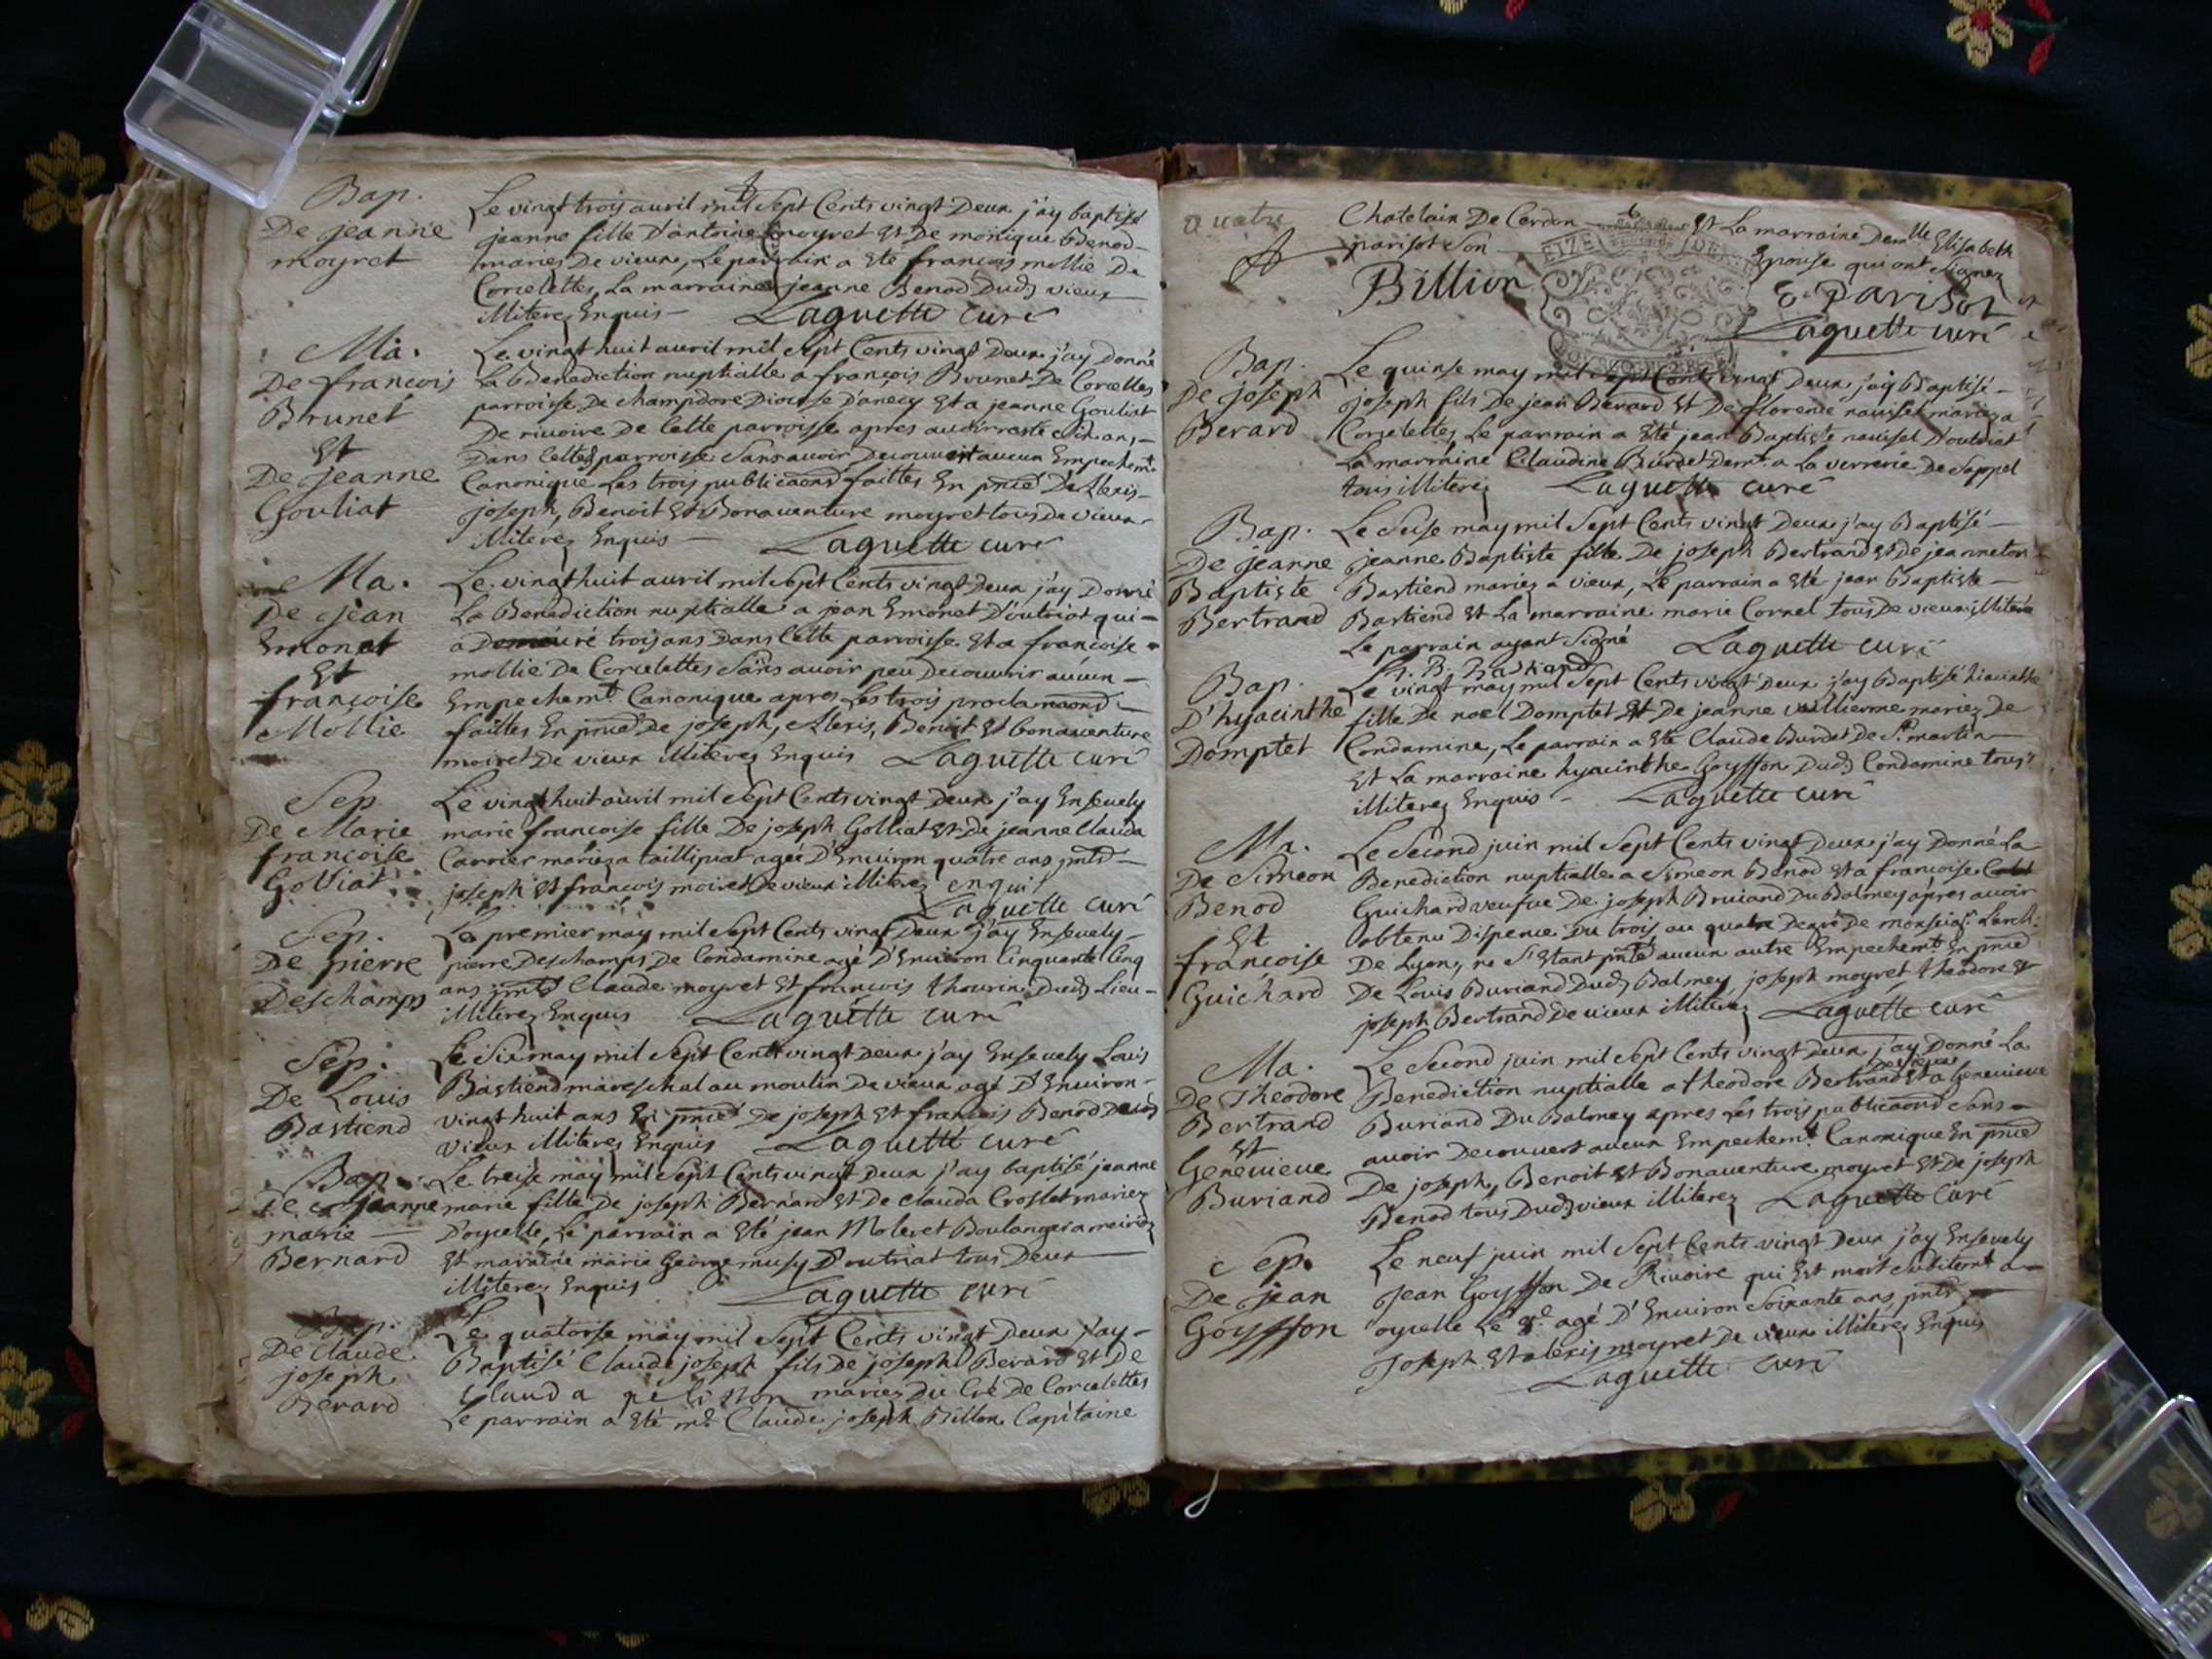 Bap.
De jeanne
moyret
Le vingt trois auril mil sept Cents vingt Deux j'ay baptisé
jeanne fille D'antoine moyret Et De monique Benod
mariez De vieux, Le parrain a Eté francois mollie De
Corcelettes, La marraine jeanne Benod Dudt vieux
illiterez Enquis Laguette curé
Ma.
De francois
Brunet
Et
De jeanne
Gouliat
Le vingt huit auril mil sept Cents vingt Deux j'ay Donné
La Benediction nuptialle a francois Brunet De Corcelles
parroisse De champdore Diocese D'anecy Et a jeanne Gouliat
De riuoire De Cette parroisse apres auoir resté six ans
Dans Cette parroisse Sans auoir Decouuert aucun Empechemt
Canonique Les trois publicaons faittes En pnce D'Alexis
joseph, Benoit Et Bonauenture moyret tous De vieux
illiterez Enquis Laguette curé
Ma.
De jean
Emonet
Et
françoise
Mollie
Le vingt huit auril mil sept Cents vingt Deux j'ay Donné
La Benediction nuptialle a jean Emonet D'outriat qui
a Demeuré trois ans Dans Cette parroisse Et a francoise
mollie De Corcelettes Sans auoir peu Decouurir aucun
Empechemt Canonique apres Les trois proclamaons
faittes En pnce De joseph, Alexis, Benoit Et bonauenture
moiret De vieux illiterez Enquis Laguette curé
Sep.
De Marie
françoise
Golliat
Le vingt huit auril mil sept Cents vingt Deux j'ay Enseuely
marie francoise fille De joseph Golliat Et De jeanne Clauda
Carrier mariez a taillipiat agée D'Enuiron quatre ans pnts
joseph Et francois moiret De vieux illiterez enquis
Laguette curé
Sep.
De pierre
Deschamps
Le premier may mil sept Cents vingt Deux j'ay Enseuely
pierre Deschamps De Condamine agé D'Enuiron Cinquante Cinq
ans pnts Claude moyret Et francois thourin Dudt Lieu
illiterez Enquis Laguette curé
Sep.
De Louis
Bastiend
Le Six may mil sept Cents vingt Deux j'ay Enseuely Louis
Bastiend mareschal au moulin De vieux agé D'Enuiron
vingt huit ans En pnce De joseph Et francois Benod
vieux illiterez Enquis Laguette curé
Bap.
De jeanne
marie
Bernard
Le treise may mil sept Cents vingt Deux j'ay baptisé jeanne
marie fille De joseph Bernard Et De Clauda Croslet mariez
D'oyselle, Le parrain a Eté jean Moleret Boulanger a
Et maraine marie George musy D'outriat tous Deux
illiterez Enquis Laguette curé
Bap.
De Claude
joseph
Berard
Le quatorse may mil sept Cents vingt Deux j'ay
Baptisé Claude joseph fils De joseph Berard Et De
Clauda pelisson mariez Du Cré De Corcelettes
Le parrain a Eté mr Claude joseph Billon Capitaine
quatre
Chatelain De Cerdon Et La marraine Demlle Elisabeth
parisot Son Epouse qui ont Signez
Billion E. Parisot
Laguette curé
Bap.
De joseph
Berard
Le quinse may mil sept Cents vingt Deux j'ay Baptisé
joseph fils De jean Berard Et De florence rauisel mariez a
Corcelettes, Le parrain a Eté jean Baptiste rauisel D'outriat
La marraine Claudine Burdet Demt a La verrerie De Sappel
tous illiterez Laguette curé
Bap.
De jeanne
Baptiste
Bertrand
Le Seise may mil Sept Cents vingt Deux j'ay Baptisé
jeanne Baptiste fille De joseph Bertrand Et De jeanneton
Bastiend mariez a vieux, Le parrain a Eté jean Baptiste
Bastiend Et La marraine marie Cornet tous De vieux illiterés
Le parrain ayant Signé Laguette curé
J. B. Bastiand
Bap.
D'hyacinthe
Domptet
Le vingt may mil Sept Cents vingt Deux j'ay Baptisé hiacinthe
fille De noel Domptet Et De jeanne vuillierme mariez De
Condamine, Le parrain a Eté Claude Burdet De St martin
Et La marraine hyacinthe Goyffon Dudt Condamine tous
illiterez Enquis Laguette curé
Ma.
De Simeon
Benod
Et
françoise
Guichard
Le Second juin mil Sept Cents vingt Deux j'ay Donné La
Benediction nuptialle a Simeon Benod Et a francoise
Guichard veufue De joseph Bruiand Du Balmey apres auoir
obtenu Dispence Du trois au quatre Degré De monseigr Larch.
De Lyon, ne S'Estant pnté aucun autre Empechemt En pnce
De Louis Buriand Dudt Balmey, joseph moyret, theodore Et
joseph Bertrand De vieux illiterez Laguette curé
Ma.
De Theodore
Bertrand
Et
Geneuieue
Buriand
Le Second juin mil Sept Cents vingt Deux j'ay Donné La
Benediction nuptialle a theodore Bertrand De vieux Et a Geneuieue
Buriand Du Balmey apres Les trois publicaons Sans
auoir Decouuert aucun Empechemt Canonique En pnce
De joseph, Benoit Et Bonauenture moyret Et De joseph
Benod tous Dudt vieux illiterez Laguette Curé
Sep.
De jean
Goyffon
Le neuf juin mil Sept Cents vingt Deux j'ay Enseuely
Jean Goyffon De Riuoire qui Est mort Subitemt a
oyselle Le 8e agé D'Enuiron Soixante ans pnts
Joseph Et alexis moyret De vieux illiterez Enquis
Laguette curé